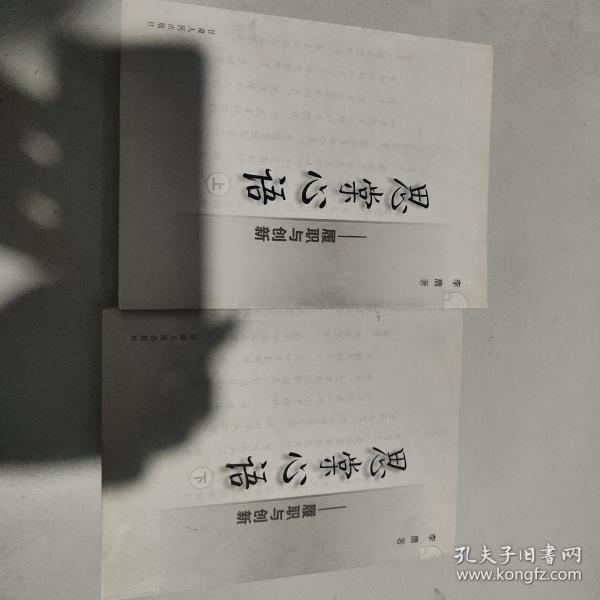 思棠心语
上
——履职与创新
李膺 著
甘肃人民出版社
思棠心语
下
——履职与创新
李膺 著
甘肃人民出版社
孔夫子旧书网
www.kongfz.com